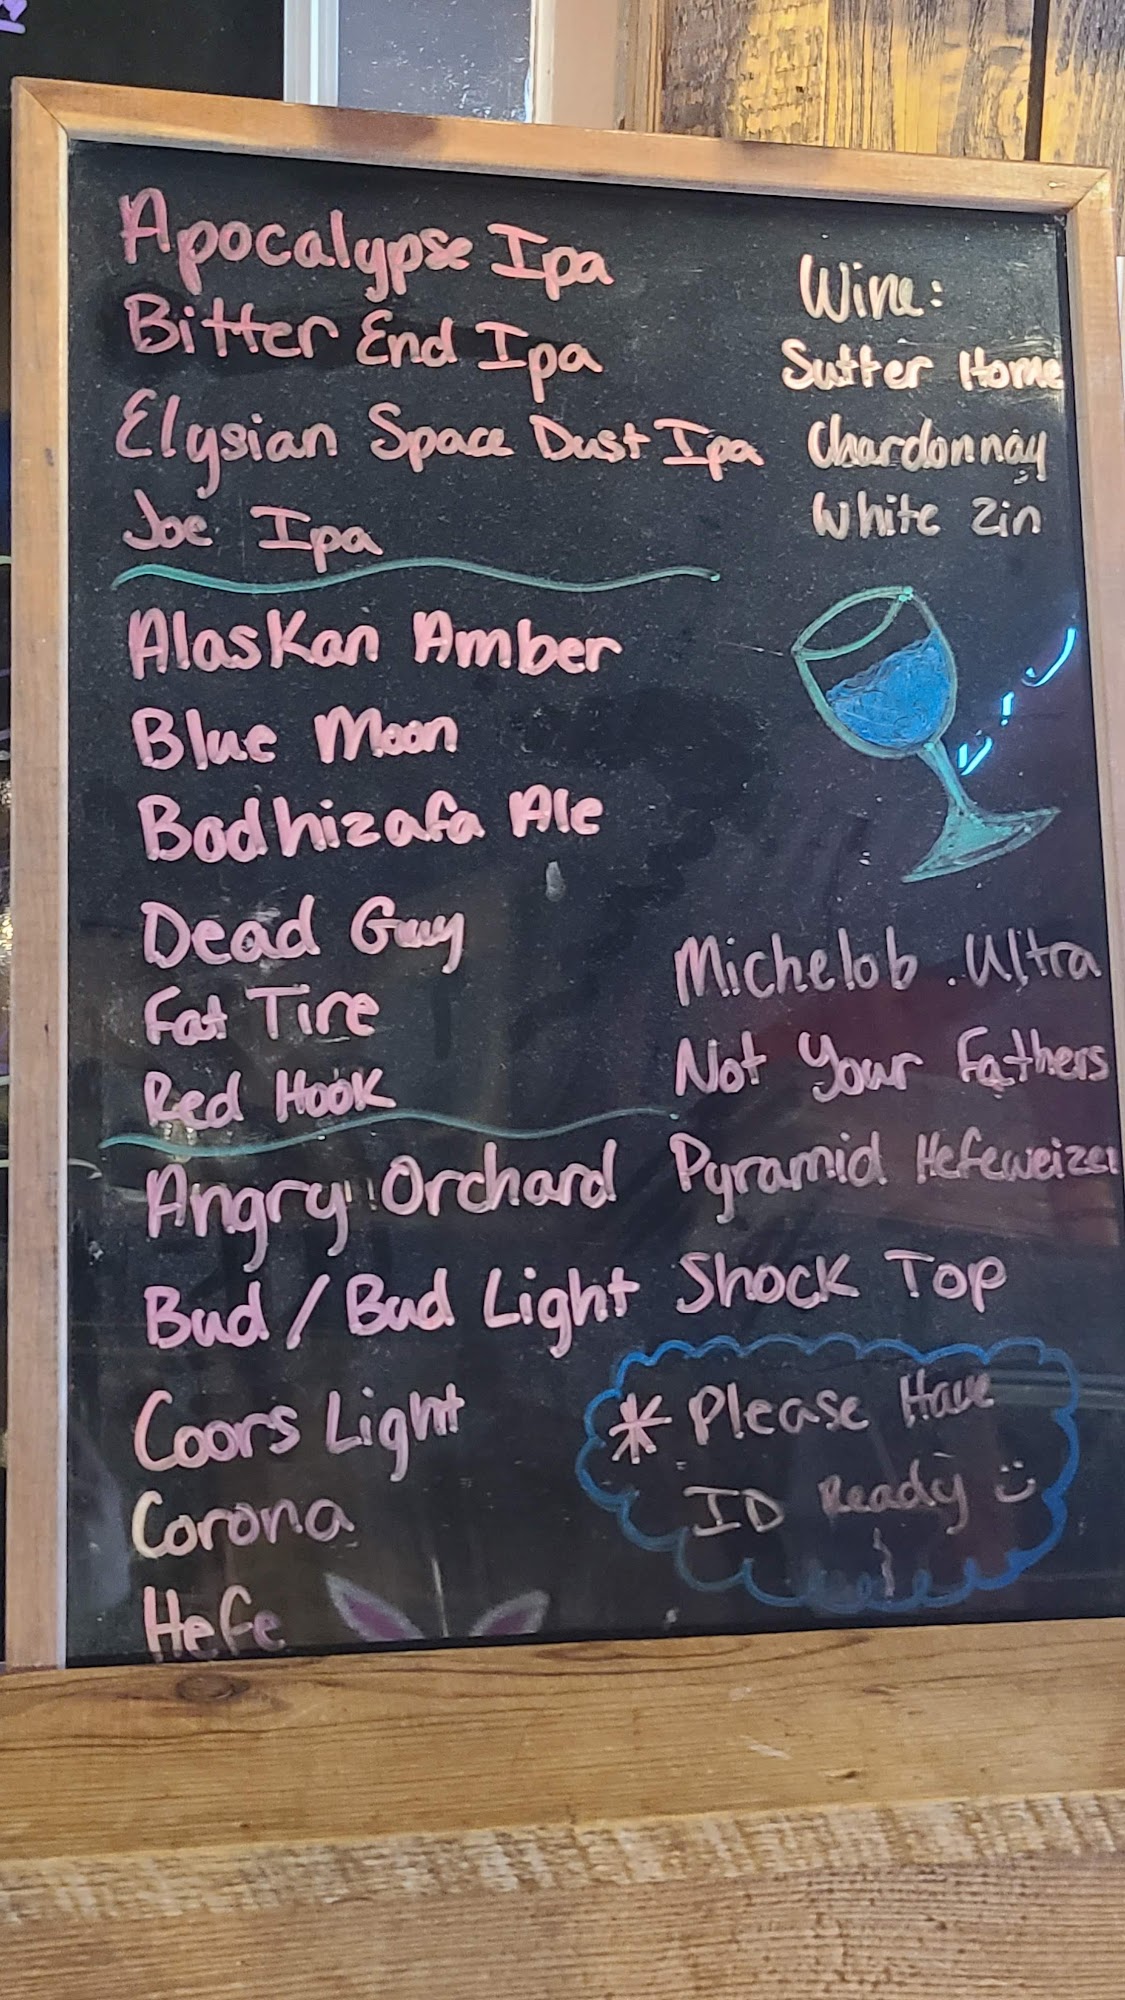 Apocalypse Ipa
Bitter End Ipa
Elysian Space Dust Ipa
Joe Ipa
Alaskan Amber
Blue Moon
Bodhizafa Ale
Dead Guy
Fat Tire
Red Hook
Angry Orchard
Bud / Bud Light
Coors Light
Corona
Hefe
Wine:
Sutter Home
Chardonnay
White Zin
Michelob Ultra
Not Your Fathers
Pyramid Hefeweizen
Shock Top
* Please Have
ID Ready :)